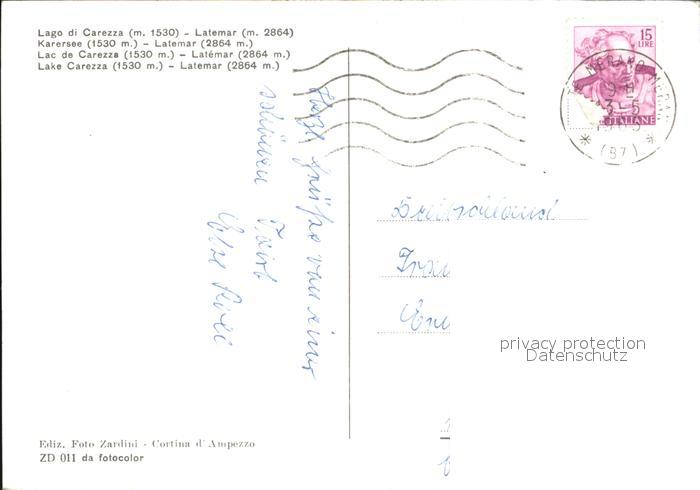 Lago di Carezza (m. 1530) – Latemar (m. 2864)
Karersee (1530 m.) – Latemar (2864 m.)
Lac de Carezza (1530 m.) – Latémar (2864 m.)
Lake Carezza (1530 m.) – Latemar (2864 m.)
15
LIRE
MERANO
3-5
ITALIANE
(87)
Herzl. Grüße von einer
schönen Fahrt
Deutschland
privacy protection
Datenschutz
Ediz. Foto Zardini - Cortina d'Ampezzo
ZD 011 da fotocolor